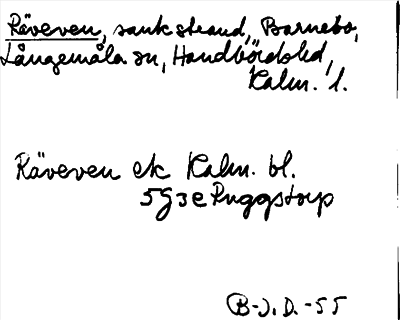 Räveven, sank strand, Barnebo,
Långemåla sn, Handbördshd,
Kalm. l.
Räveven ek Kalm. bl.
5g3e Ruggstorp
B-J. D. -55